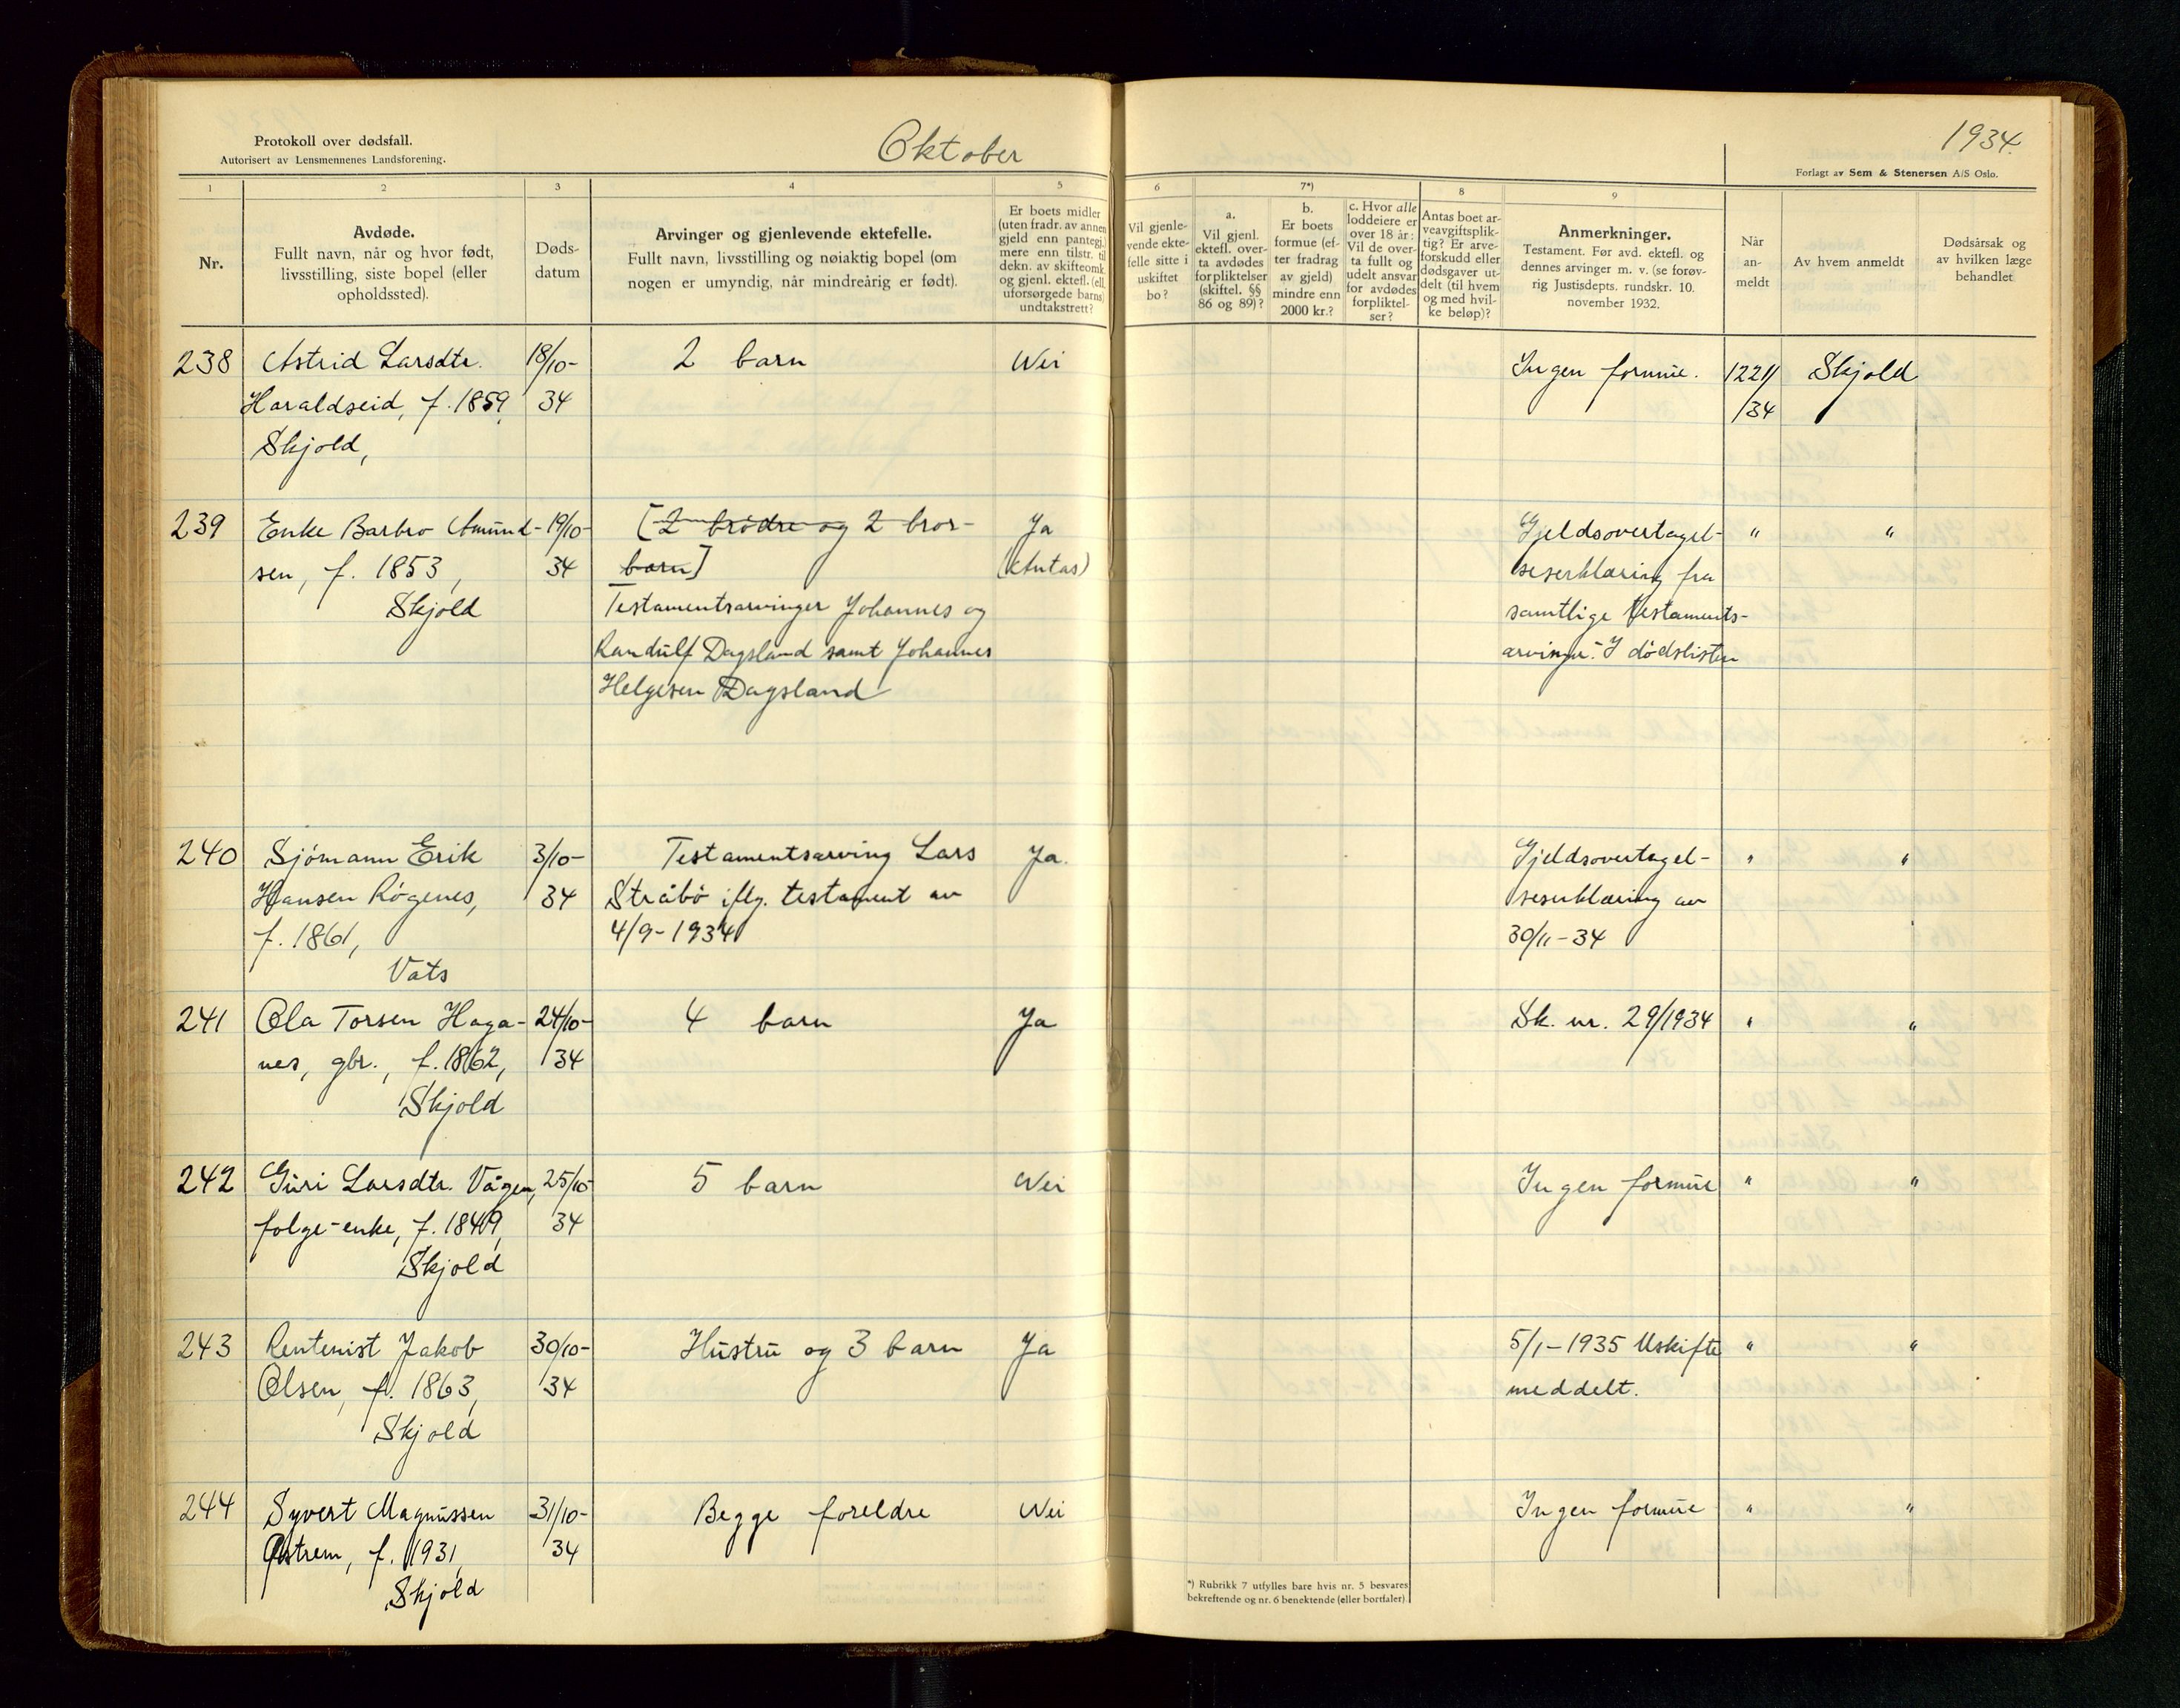 Protokoll over dødsfall.
Autorisert av Lensmennenes Landsforening.
Oktober
1934.
Forlagt av Sem & Stenersen A/S Oslo.
1
2
3
4
5
6
7*)
8
9
Nr.
Avdøde.
Fullt navn, når og hvor født,
livsstilling, siste bopel (eller
opholdssted).
Døds-
datum
Arvinger og gjenlevende ektefelle.
Fullt navn, livsstilling og nøiaktig bopel (om
nogen er umyndig, når mindreårig er født).
Er boets midler
(uten fradr. av annen
gjeld enn pantegj.)
mere enn tilstr. til
dekn. av skifteomk.
og gjenl. ektefl. (ell.
uforsørgede barns)
undtakstrett?
Vil gjenle-
vende ekte-
felle sitte i
uskiftet
bo?
a.
Vil gjenl.
ektefl. over-
ta avdødes
forpliktelser
(skiftel. §§
86 og 89)?
b.
Er boets
formue (ef-
ter fradrag
av gjeld)
mindre enn
2000 kr.?
c. Hvor alle
loddeiere er
over 18 år:
Vil de over-
ta fullt og
udelt ansvar
for avdødes
forpliktel-
ser?
Antas boet ar-
veavgiftsplik-
tig? Er arve-
forskudd eller
dødsgaver ut-
delt (til hvem
og med hvil-
ke beløp)?
Anmerkninger.
Testament. Før avd. ektefl. og
dennes arvinger m. v. (se forøv-
rig Justisdepts. rundskr. 10.
november 1932.
Når
an-
meldt
Av hvem anmeldt
Dødsårsak og
av hvilken læge
behandlet
238 Astrid Larsdtr. 18/10- 2 barn Nei Ingen formue. 1221/ Skjold
Haraldseid, f. 1859, 34 /34
Skjold,
239 Enke Barbro Amund- 19/10- [2 brødre og 2 bror- Ja Gjeldsovertagel- " "
sen, f. 1853, 34 barn] (Antas) seserklæring fra
Skjold Testamentsarvinger Johannes og samtlige testaments-
Randulf Dagsland samt Johannes arvinger.- I dødslisten
Helgesen Dagsland
240 Sjømann Erik 3/10- Testamentsarving Lars Ja. Gjeldsovertagel- " "
Hansen Røgenes, 34 Stråbø iflg. testament av seserklæring av
f. 1861, 4/9-1934 30/11-34
Vats
241 Ola Torsen Haga- 24/10- 4 barn Ja Sk. nr. 29/1934 " "
nes, gbr., f. 1862, 34
Skjold
242 Guri Larsdtr. Vågen, 25/10- 5 barn Nei Ingen formue " "
følge-enke, f. 1849, 34
Skjold
243 Rentenist Jakob 30/10- Hustru og 3 barn Ja 5/1-1935 Uskifte " "
Olsen, f. 1863, 34 meddelt.
Skjold
244 Syvert Magnussen 31/10- Begge foreldre Nei Ingen formue " "
Østrem, f. 1931, 34
Skjold
*) Rubrikk 7 utfylles bare hvis nr. 5 besvares
bekreftende og nr. 6 benektende (eller bortfaler).